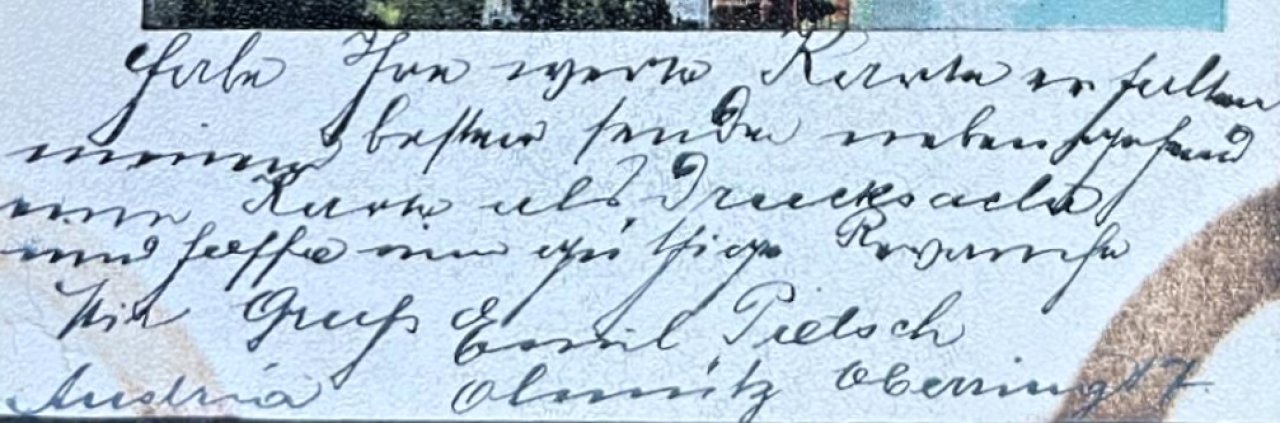 Habe Ihre werte Karte erhalten
meinen besten sende nebengehend
eine Karte als Drucksache
und hoffe um gütige Revanche
Mit Gruß Emil Pietsch
Austria Olmütz Oberring 17